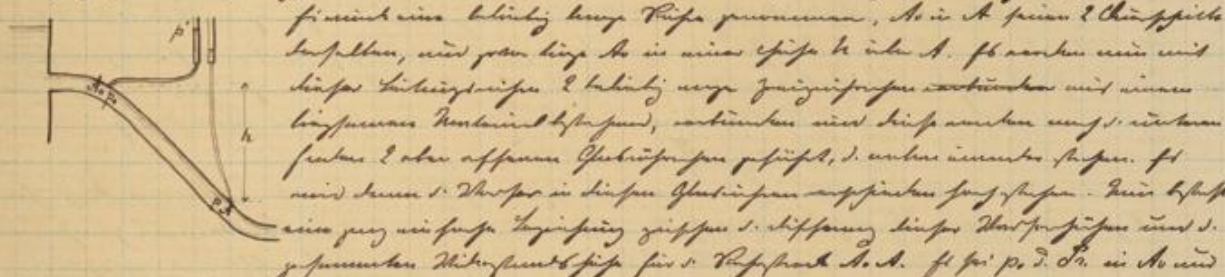 sei nun eine beliebig lange Röhre genommen, A₀ u. A seien 2 Querschnitte
derselben, und zwar liege A₀ in einer Höhe h über A. Es werden nun mit
dieser 2 beliebig enge aus einem
biegsamen Material bestehend, verbunden und diese werden nach d. unteren
Enden 2 oben offenen Glasröhrchen geführt, d. neben einander stehen. Es
wird dann d. Wasser in diesen Glasröhrchen verschieden hoch stehen. Nun besteht
eine ganz einfache Beziehung zwischen d. Differenz dieser Wasserhöhen und d.
gesammten Widerstandshöhe für d. A₀A. Es sei p₀ d. in A₀ und
p'
A₀ p₀
h
p A